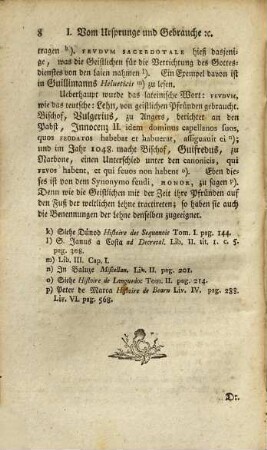 8 I. Vom Ursprunge und Gebräuche ꝛc.
tragen k). FEVDVM SACERDOTALE hieß dasjeni-
ge, was die Geistlichen für die Verrichtung des Gottes-
dienstes von den laien nahmen l). Ein Exempel davon ist
in Guillimanns Helvetieis m) zu lesen.
Ueberhaupt wurde das lateinische Wort: FEVDVM,
wie das teutsche: Lehn, von geistlichen Pfründen gebraucht.
Bischof, Vulgerius, zu Angers, berichtet an den
Pabst, Innocenz II. idem dominus capellanos suos,
quos FEODATOS habebat et habuerat, assignauit n);
und im Jahr 1048. mache Bischof, Guifredus, zu
Narbone, einen Unterschied unter den canonicis, qui
FEVOS habent, et qui feuos non habent o). Eben die-
ses ist von dem Synonymo feudi, HONOR, zu sagen p).
Denn, wie die Geistlichen mit der Zeit ihre Pfründen auf
den Fuß der weltlichen lehne tractireten; so haben sie auch
die Benennungen der lehne denselben zugeeignet.
k) Siehe Dünod Histoire des Sequanois Tom. I. pag. 144.
l) S. Janus a Costa ad Decretal. Lib. II. tit. 1. c. 5.
pag. 308.
m) Lib. III. Cap. I.
n) In Baluze Miscellan. Lib. II. pag. 201.
o) Siehe Histoire de Languedoc Tom. II. pag. 214.
p) Peter de Marca Histoire de Bearn Liv. IV. pag. 288.
Liv. VI. pag. 568.
D2.